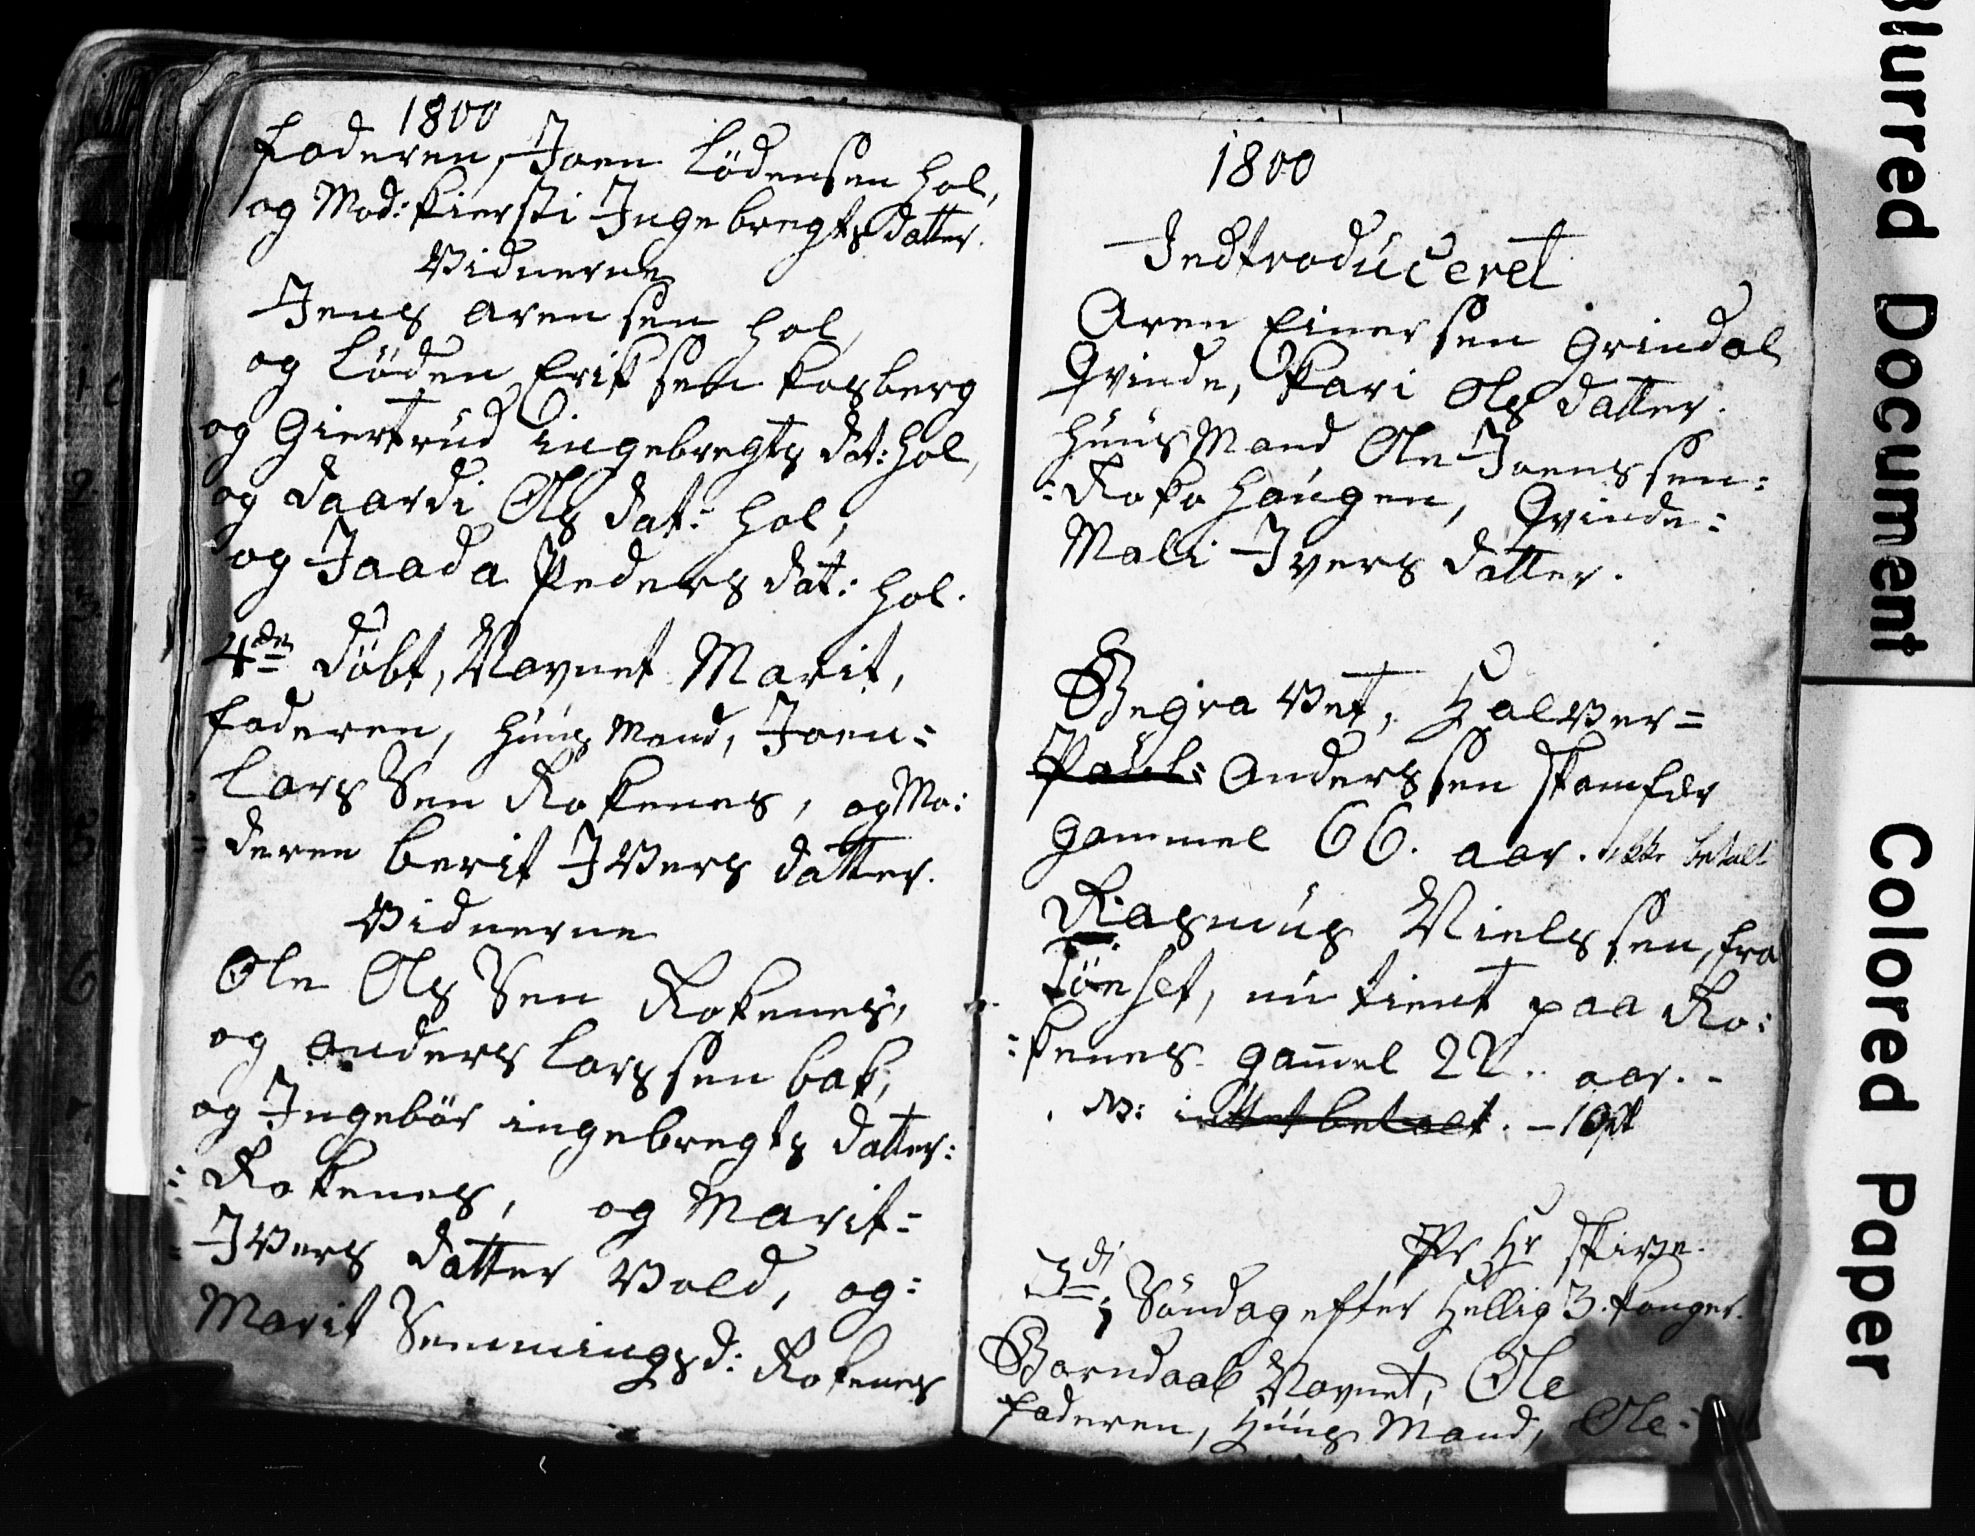 1800
faderen, Joen Lödensen Hol,
og Mod: Kiersti Ingebregts datter.
Vidnerne
Jens arensen Hol,
og Löden Eriksen Kosberg
og Giertrud ingebregts dat: Hol,
og daardi Ols dat: Hol,
og Jaada Peders dat: Hol.
4de döbt, Navnet Marit,
faderen, Huus mand, Joen=
Lars Sen Rokenes, og Mo:
=deren berit IVers datter.
Vidnerne
Ole Ols Sen Rokenes,
og anders Larssen bak,
og Ingebör ingebregts datter:
=Rokenes, og Marit=
=IVers datter Vold, og:
Marit Semmingsd: Rokenes
1800
Indtroduceret
Aren Einersen Grindal
Qvinde, Kari Ols datter.
Huus Mand Ole Joenssen:
:Roko haugen, Qvinde:
Mali Ivers datter.
Begravet, Halver=
Paul: Anderssen Skamfær
gammel 66. aar. ikke betalt
Rasmus Nielssen, fra
Tönset, nu tient paa Ro:
:kenes. gamel 22.. aar.-
NB: intet betalt. - 10 s
Pr Hr Skive.
3di Söndag efter Hellig 3. Konger.
Barndaab Navnet, Ole
faderen, Huus Mand, Ole:
Blurred Document
Colored Paper